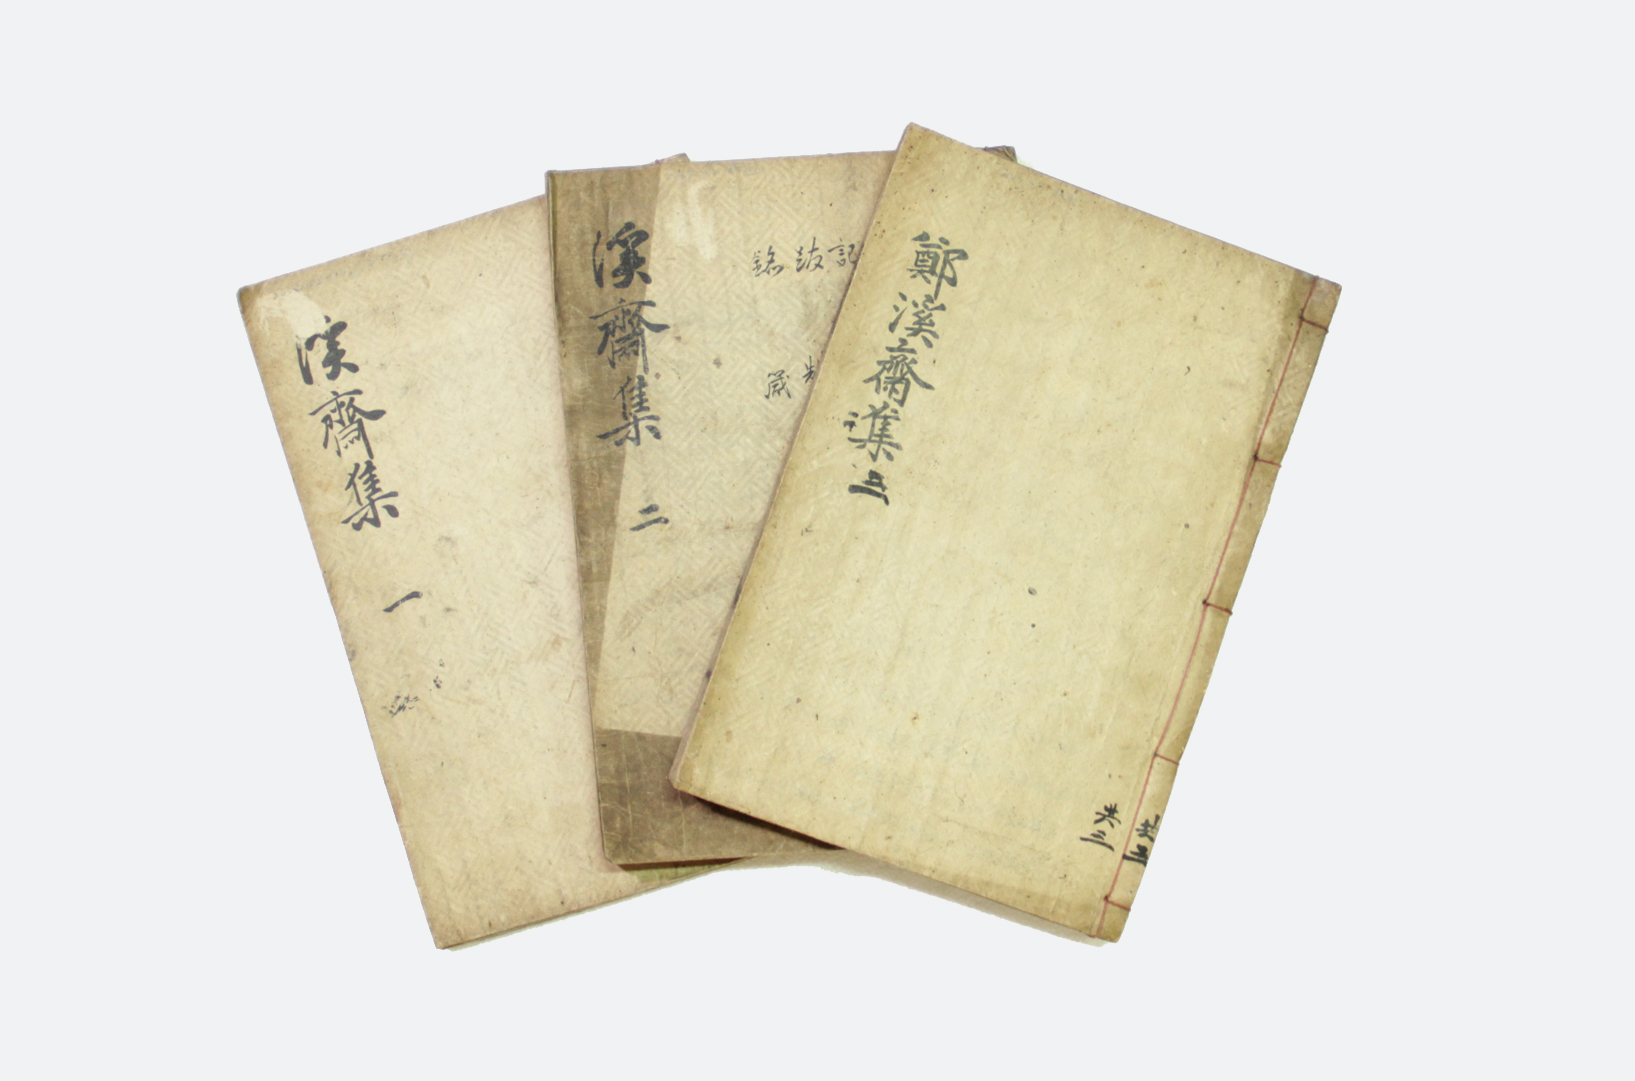 溪齋集 一
溪齋集 二
記
跋
銘
箴
鄭溪齋集 三
共三
共三